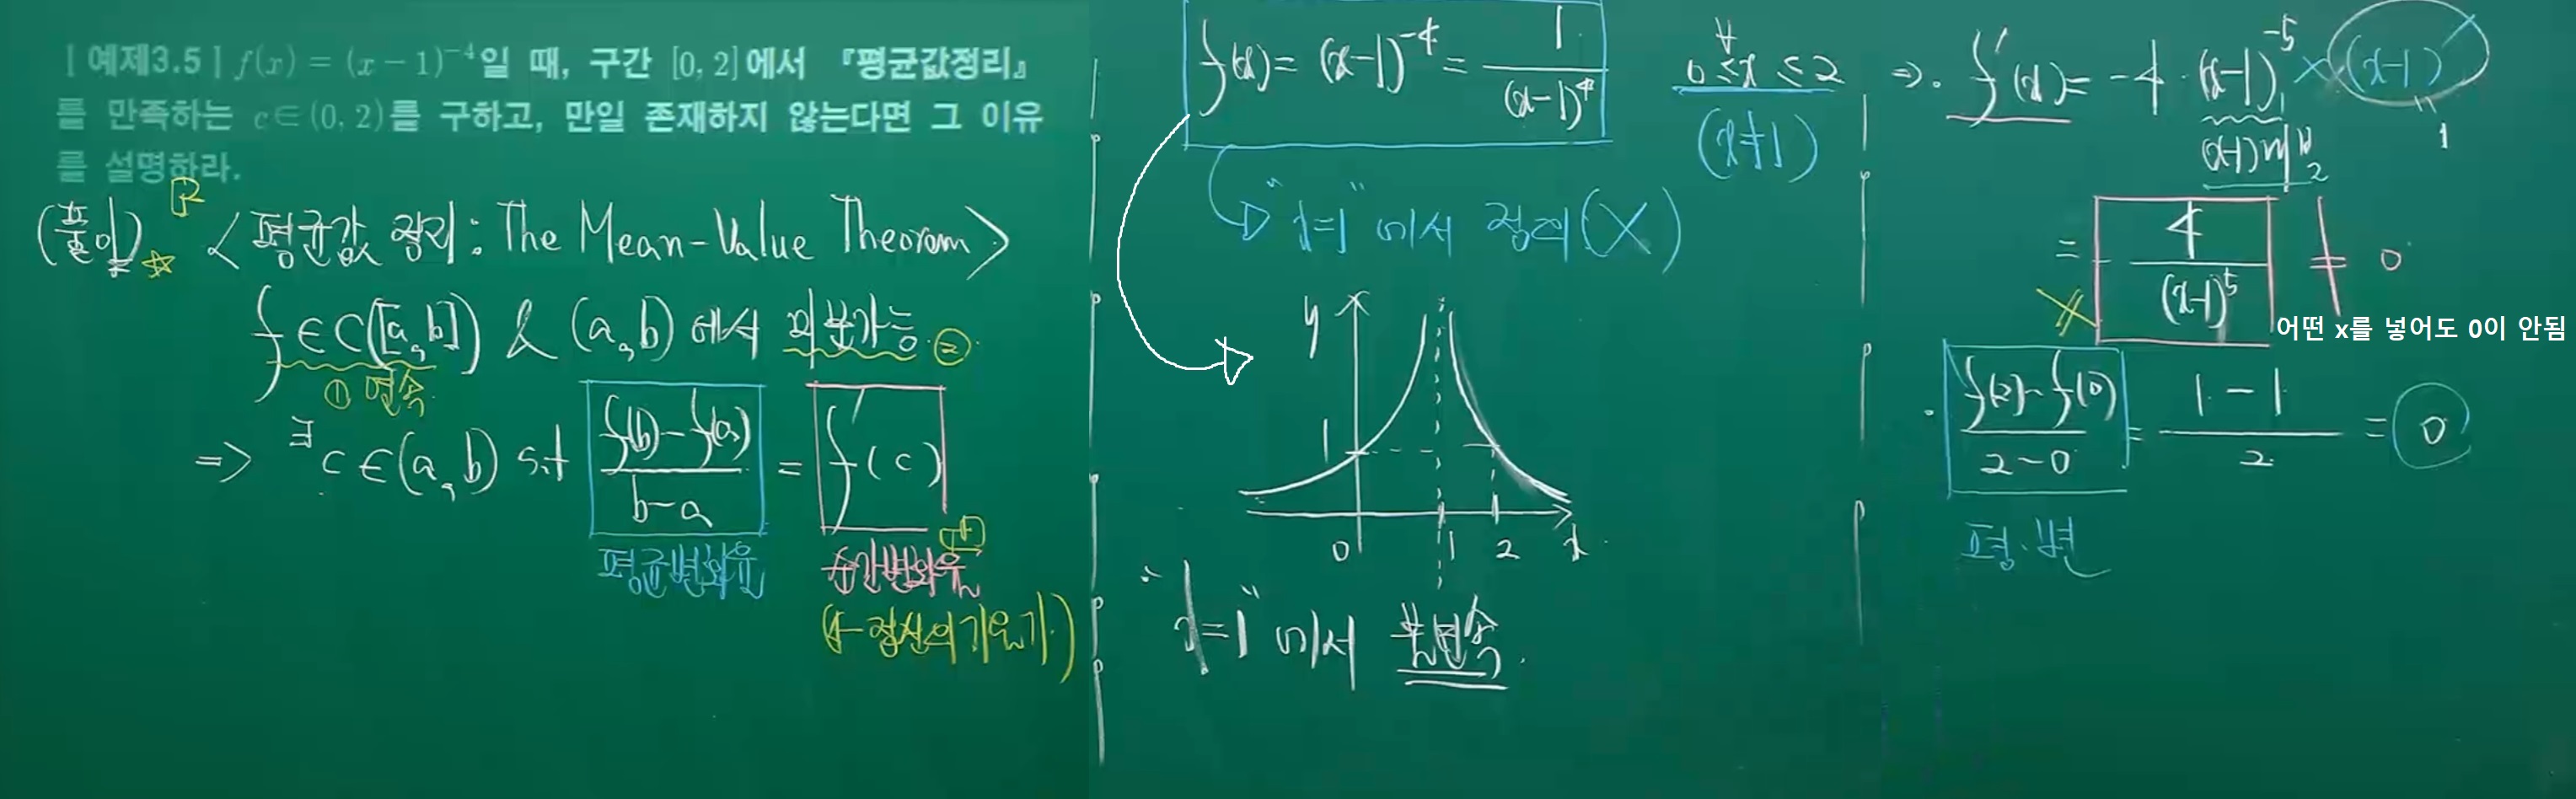 [예제3.5] f(x) = (x-1)⁻⁴일 때, 구간 [0, 2]에서 『평균값정리』
를 만족하는 c∈(0, 2)를 구하고, 만일 존재하지 않는다면 그 이유
를 설명하라.
(풀이) <평균값 정리: The Mean-Value Theorem>
f∈C([a, b]) & (a, b)에서 미분가능 ②
① 연속
⇒ ∃c∈(a, b) s.t (f(b)-f(a))/(b-a) = f′(c)
평균변화율 순간변화율
(접선의기울기)
f(x)= (x-1)⁻⁴ = 1/(x-1)⁴
∀ 0≤x≤2
(x≠1)
"x=1"에서 정의(X)
y
1
0 1 2 x
"x=1"에서 불연속.
⇒. f′(x)= -4·(x-1)⁻⁵×(x-1)′
1
= -4/(x-1)⁵ ≠ 0
어떤 x를 넣어도 0이 안됨
· (f(2)-f(0))/(2-0) = (1-1)/2 = 0
평.변